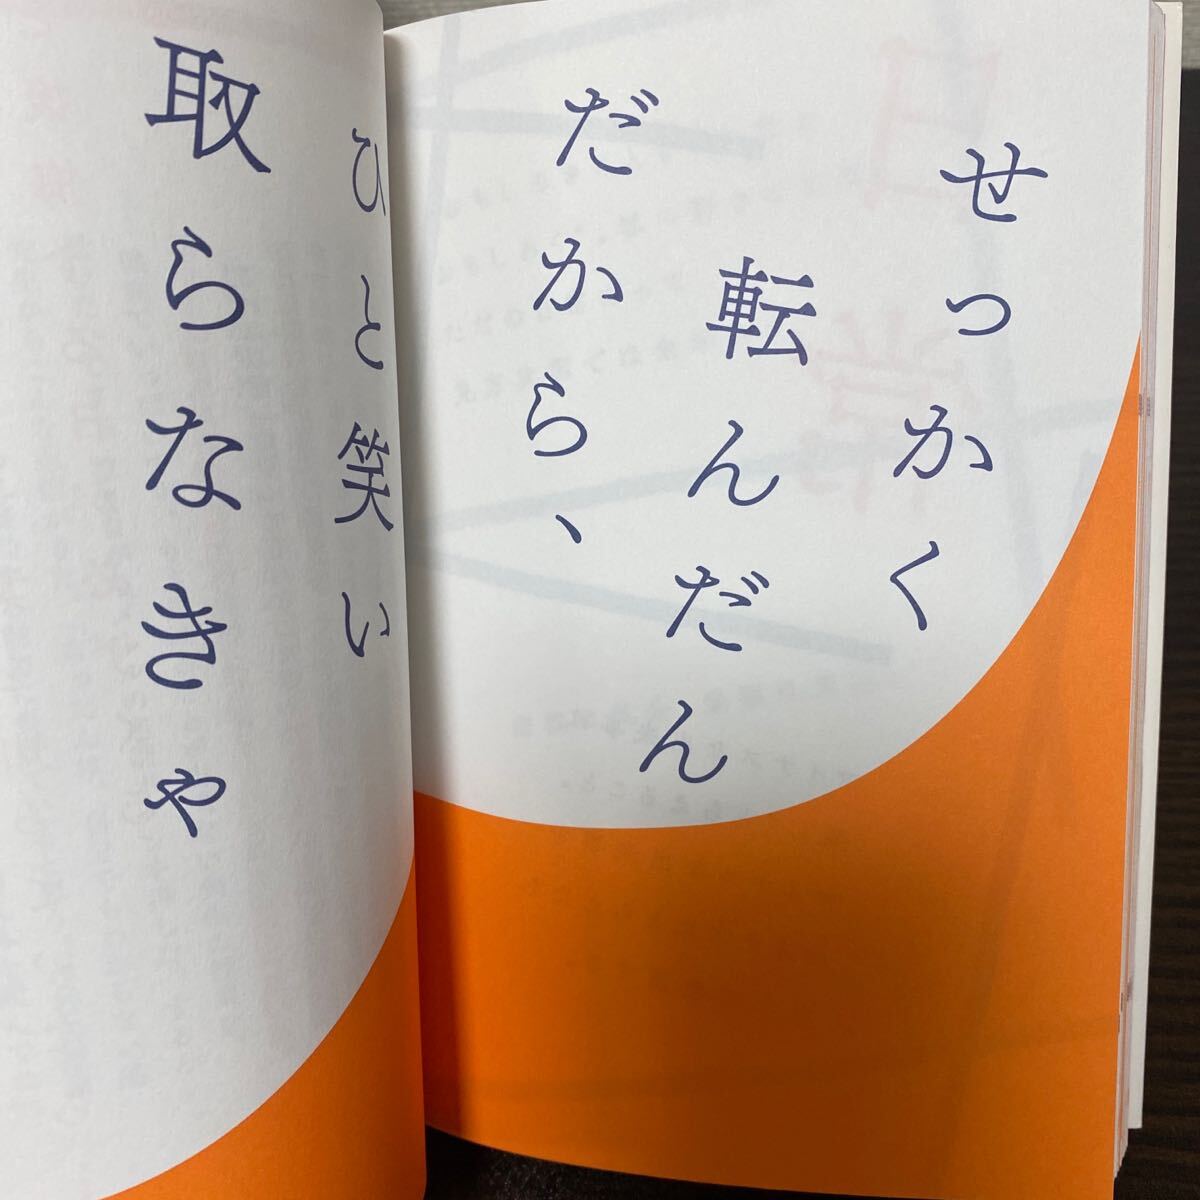 せっかく
転んだん
だから、
ひと笑い
取らなきゃ